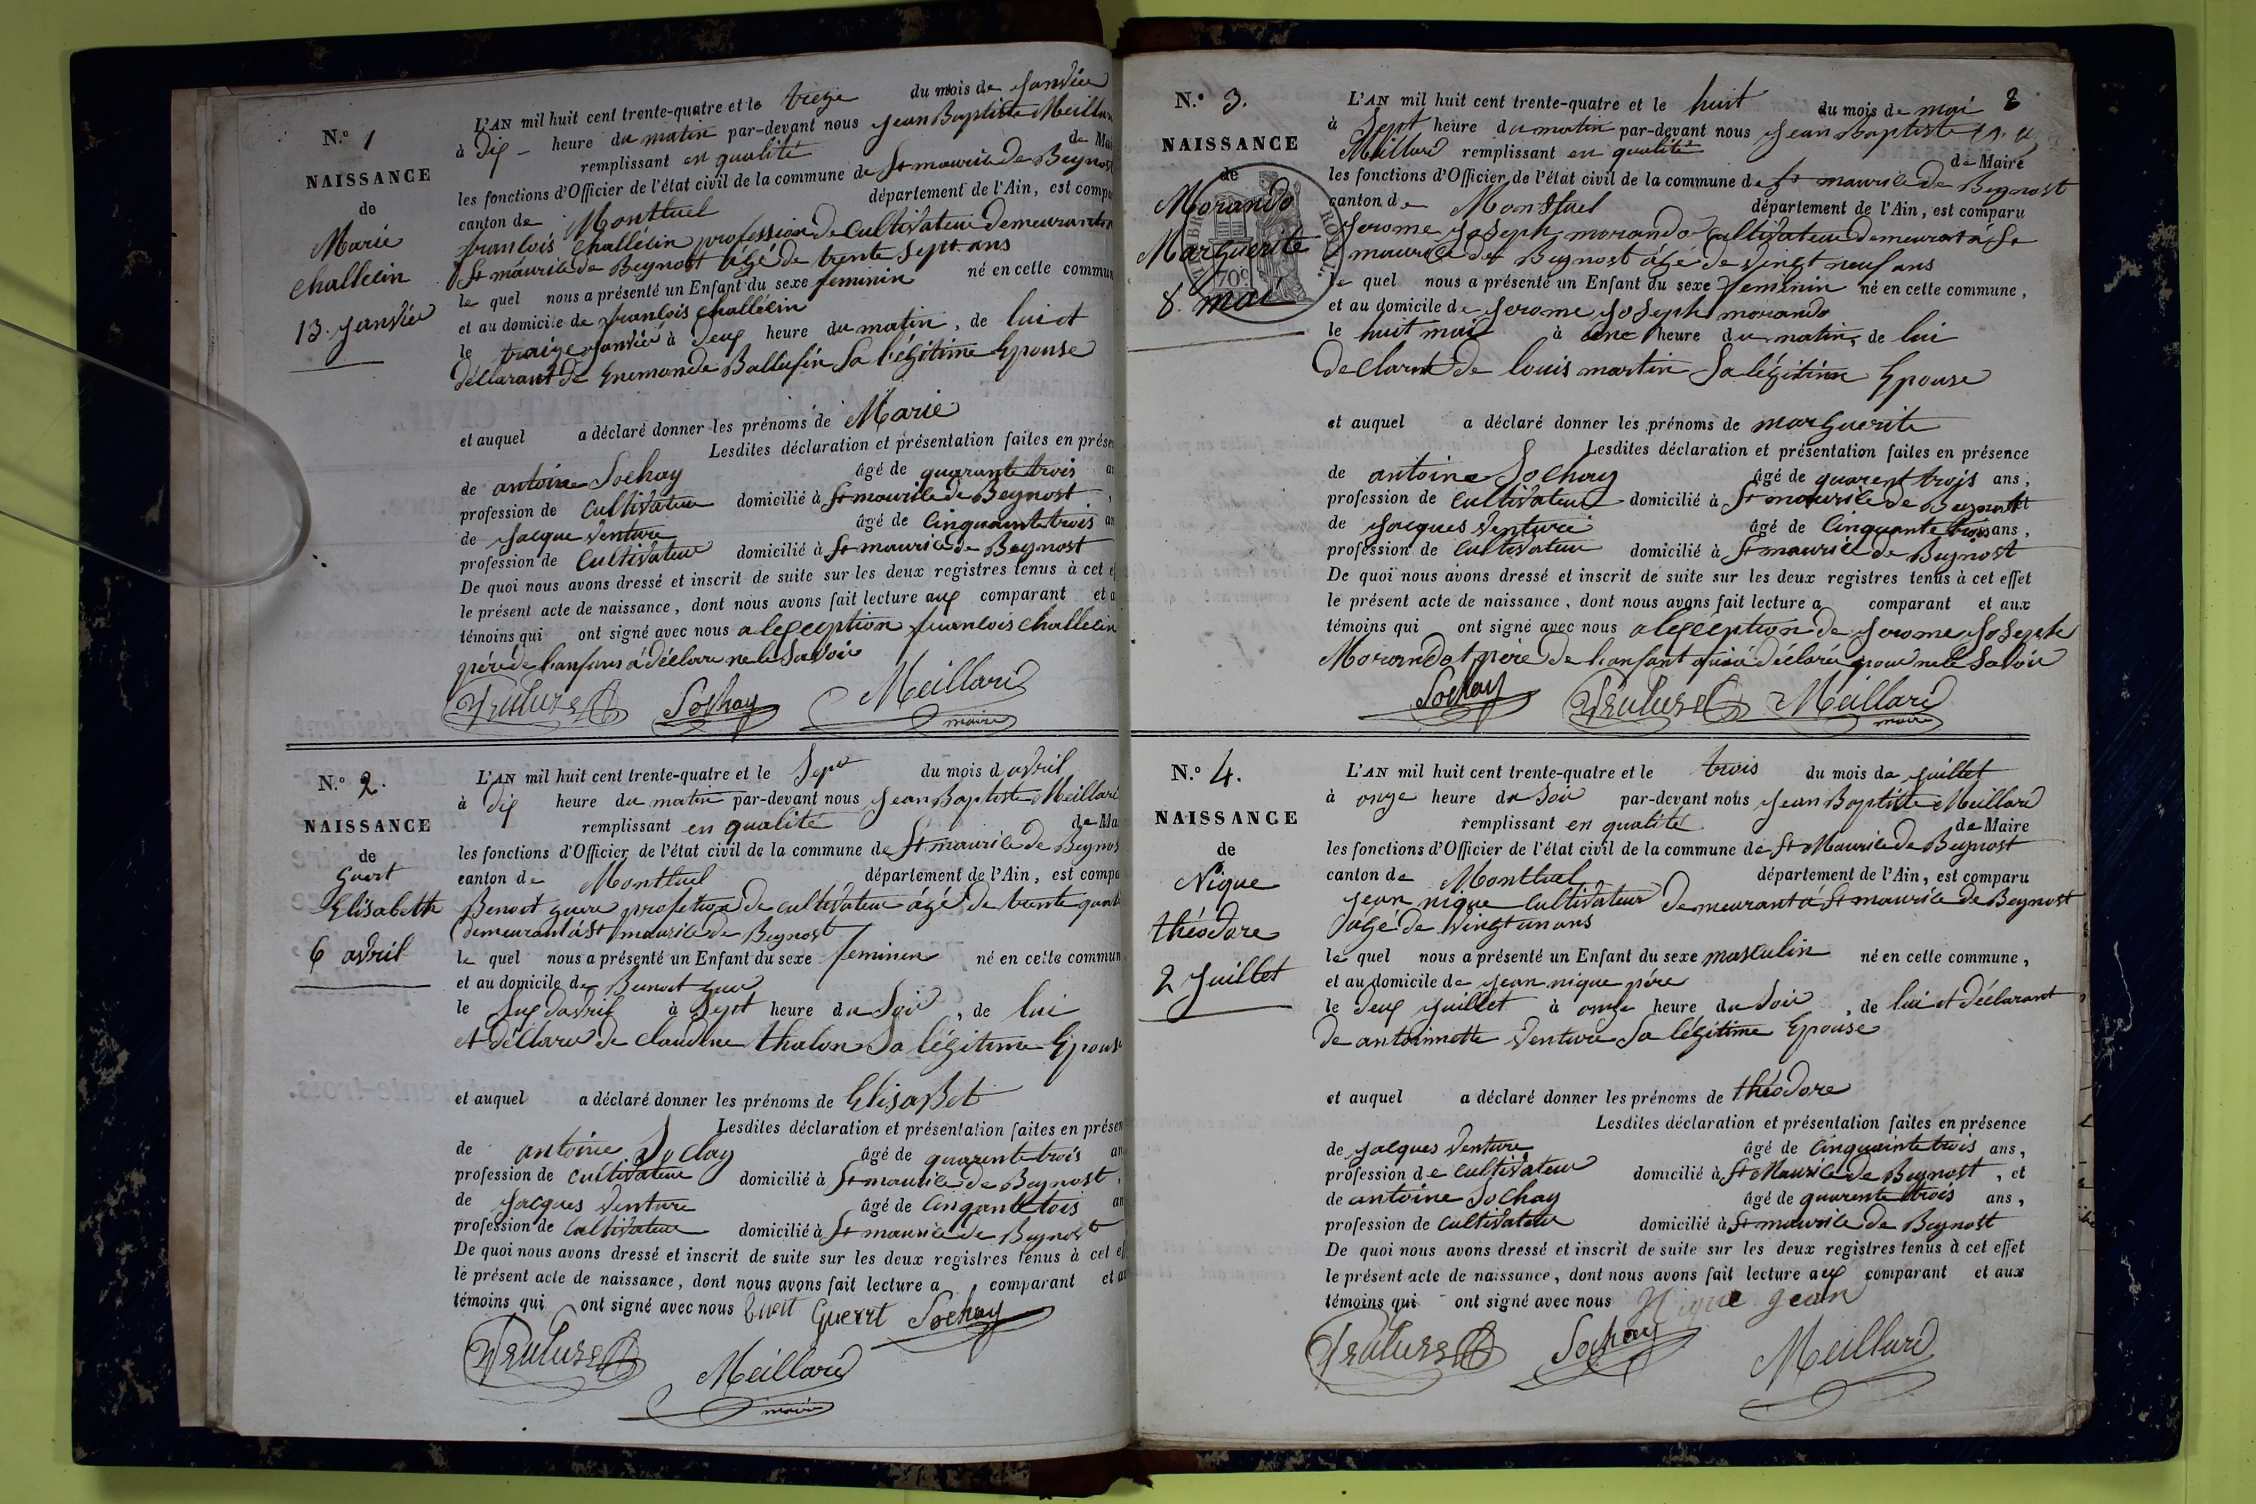 N.° 1
NAISSANCE
de
Marie
challecin
13. janvier
L'AN mil huit cent trente-quatre et le treze du mois de janvier
à dix heure du matin par-devant nous jean Baptiste Meillard
remplissant en qualité de Mai
les fonctions d'Officier de l'état civil de la commune de St maurice de Beynost
canton de Montluel département de l'Ain, est compa
françois challécin profession de cultivateur demeurant
St maurice de Beynost âgé de trente sept ans
le quel nous a présenté un Enfant du sexe feminin né en cette commun
et au domicile de françois challécin
le traize janvier à deux heure du matin, de lui et
déclarant de Enemonde Ballufin Sa légitime Epouse
et auquel a déclaré donner les prénoms de Marie
Lesdites déclaration et présentation faites en prése
de antoine Sochay âgé de quarante trois an
profession de cultivateur domicilié à St maurice de Beynost,
de jacque Venture âgé de Cinquainte trois an
profession de cultivateur domicilié à St maurice de Beynost
De quoi nous avons dressé et inscrit de suite sur les deux registres tenus à cet ef
le présent acte de naissance, dont nous avons fait lecture aux comparant et a
témoins qui ont signé avec nous a lexception françois challecin
père de lanfans a déclare ne le Savoir
Venture Sochay Meillard
maire
N.° 2.
NAISSANCE
de
Guert
Elisabeth
6 avril
L'AN mil huit cent trente-quatre et le Sept du mois d avril
à dix heure du matin par-devant nous jean Baptiste Meillard
remplissant en qualité de Ma
les fonctions d'Officier de l'état civil de la commune de St maurice de Beynos
canton de Montluel département de l'Ain, est compa
Benoit guere profetion de cultivateur âgé de trente quat
demeurant à St maurice de Beynost
le quel nous a présenté un Enfant du sexe feminin né en cette commun
et au domicile de Benoit
le Six davril à Sept heure du Soir, de lui
et déclare de claudine thalon Sa légitime Epouse
et auquel a déclaré donner les prénoms de ElisaBet
Lesdites déclaration et présentation faites en présen
de antoine Sochay âgé de quarente trois an
profession de cultivateur domicilié à St maurice de Beynost,
de jacques Venture âgé de Cinqante tois an
profession de cultivateur domicilié à St maurice de Beynost
De quoi nous avons dressé et inscrit de suite sur les deux registres tenus à cet ef
le présent acte de naissance, dont nous avons fait lecture a comparant et au
témoins qui ont signé avec nous Guerrt Sochay
Venture Meillard
maire
2
N.° 3.
NAISSANCE
de
Morando
Marguerite
8. mai
TIMBRE ROYAL.
70c.
L'AN mil huit cent trente-quatre et le huit du mois de mai
à Sept heure du matin par-devant nous jean Baptiste
Meillard remplissant en qualité de Maire
les fonctions d'Officier de l'état civil de la commune de St maurice de Beynost
canton de Montluel département de l'Ain, est comparu
jerome joSeph morando Cultivateur demeurant à St
maurice de Beynost âgé de vingt neuf ans
le quel nous a présenté un Enfant du sexe feminin né en cette commune,
et au domicile de jerome joSeph morando
le huit mai à une heure du matin, de lui
declarnt de louis martin Sa légitime Epouse
et auquel a déclaré donner les prénoms de marguerite
Lesdites déclaration et présentation faites en présence
de antoine Sochay âgé de quarent trois ans,
profession de cultivateur domicilié à St maurice de Beynost et
de jacques venture âgé de Cinquante trois ans,
profession de cultivateur domicilié à St maurice de Beynost
De quoi nous avons dressé et inscrit de suite sur les deux registres tenus à cet effet
le présent acte de naissance, dont nous avons fait lecture a comparant et aux
témoins qui ont signé avec nous a lexception de jerome joSeph
Morando père de lanfant qui à déclaré pour ne le Savoir
Sochay Venture Meillard
maire
N.° 4.
NAISSANCE
de
Nique
théodore
2 juillet
L'AN mil huit cent trente-quatre et le trois du mois de juillet
à onze heure du Soir par-devant nous jean Baptiste Meillard
remplissant en qualité de Maire
les fonctions d'Officier de l'état civil de la commune de St Maurice de Beynost
canton de Montluel département de l'Ain, est comparu
jean nique Cultivateur demeurant à St maurice de Beynost
âgé de vingt un ans
le quel nous a présenté un Enfant du sexe masculin né en cette commune,
et au domicile de jean nique père
le deux juillet à onze heure du Soir, de lui et déclarant
de antoinnette venture Sa légitime Epouse
et auquel a déclaré donner les prénoms de théodore
Lesdites déclaration et présentation faites en présence
de jacques venture âgé de Cinquainte trois ans,
profession de cultivateur domicilié à St Maurice de Beynost, et
de antoine Sochay âgé de quarente trois ans,
profession de cultivateur domicilié à St maurice de Beynost
De quoi nous avons dressé et inscrit de suite sur les deux registres tenus à cet effet
le présent acte de naissance, dont nous avons fait lecture aux comparant et aux
témoins qui ont signé avec nous Nique jean
Venture Sochay Meillard